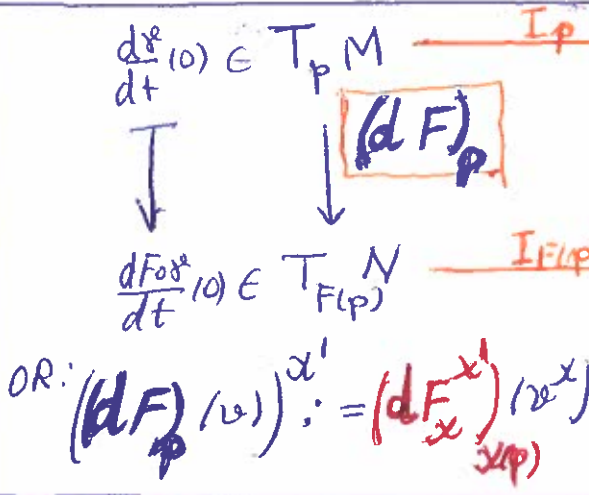 dγ/dt (0) ∈ T_p M I_p
(dF)_p
dF∘γ/dt (0) ∈ T_{F(p)} N I_{F(p
OR: ((dF)_p (v))^{x'} := (dF_x^{x'})_{x(p)} (v^x)